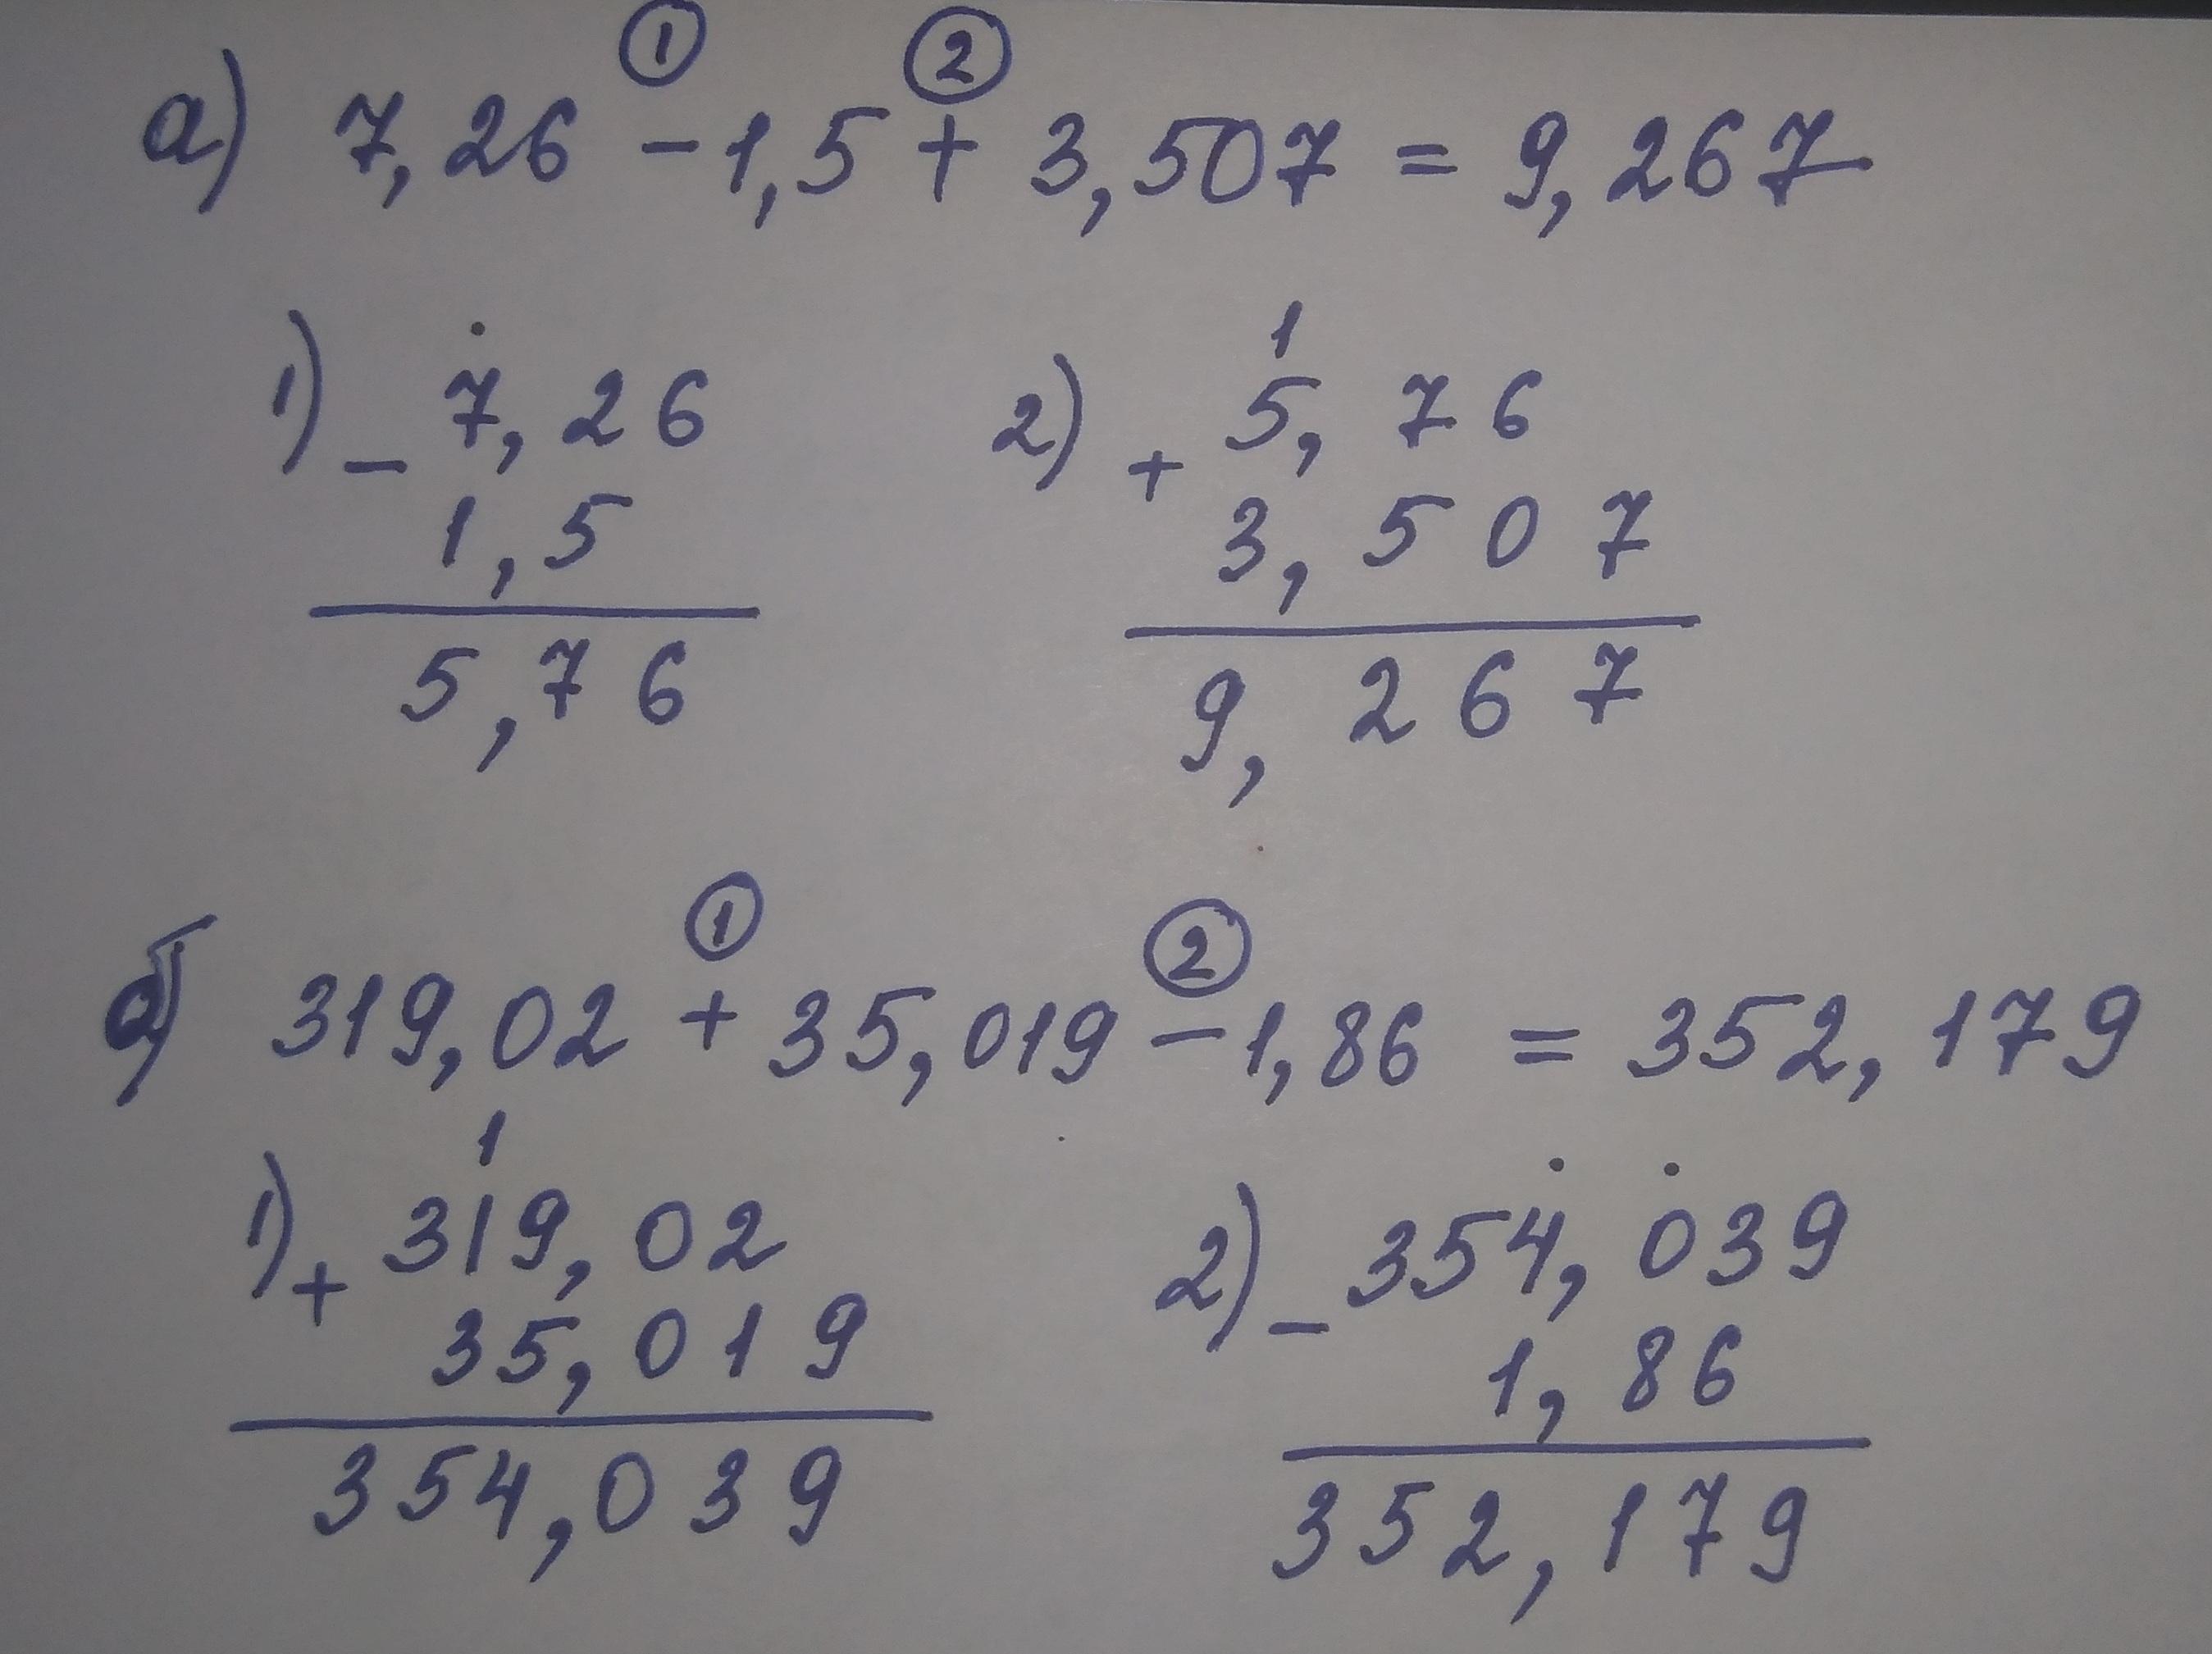 ① ②
а) 7,26 - 1,5 + 3,507 = 9,267
1) - 7,26
1,5
5,76
1
2) + 5,76
3,507
9,267
① ②
б) 319,02 + 35,019 - 1,86 = 352,179
1
1) + 319,02
35,019
354,039
2) - 354,039
1,86
352,179